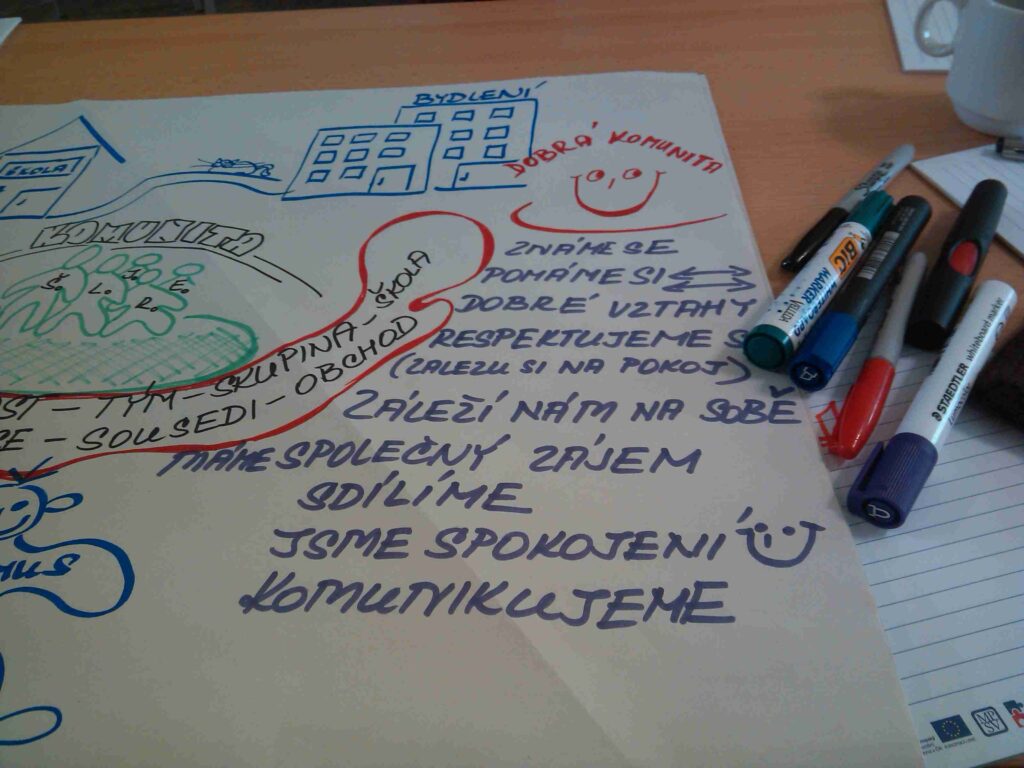 BYDLENÍ
ŠKOLA
DOBRÁ KOMUNITA
KOMUNITA
Š. L. J. R. E.
ZNÁME SE
POMÁME SI
DOBRÉ VZTAHY
RESPEKTUJEME S
(ZALEZU SI NA POKOJ)
TÝM - SKUPINA - ŠKOLA
SOUSEDI - OBCHOD
ZÁLEŽÍ NÁM NA SOBĚ
MÁME SPOLEČNÝ ZÁJEM
SDÍLÍME
JSME SPOKOJENÍ
KOMUNIKUJEME
BIC
MARKER
STAEDTLER whiteboard marker
MPSV